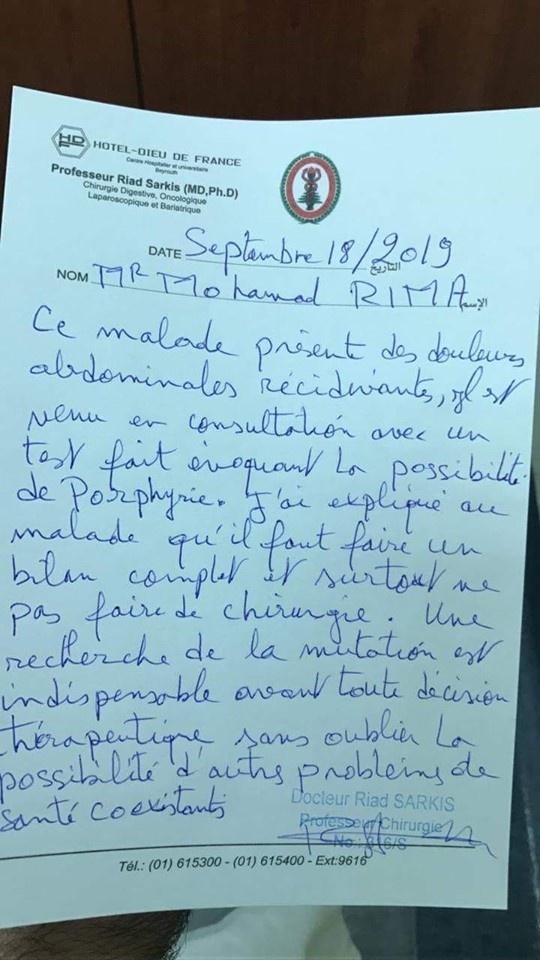 HDF HOTEL-DIEU DE FRANCE
Centre Hospitalier et universitaire
Beyrouth
Professeur Riad Sarkis (MD,Ph.D)
Chirurgie Digestive, Oncologique
Laparoscopique et Bariatrique
DATE Septembre 18/2019 التاريخ
NOM MR Mohamad RIMA الإسم
Ce malade présente des douleurs
abdominales récidivantes, il est
venu en consultation avec un
test fait évoquant la possibilité
de Porphyrie. J'ai expliqué au
malade qu'il faut faire un
bilan complet et surtout ne
pas faire de chirurgie. Une
recherche de la mutation est
indispensable avant toute décision
thérapeutique sans oublier la
possibilité d'autres problèmes de
santé coexistants
Docteur Riad SARKIS
Professeur Chirurgie
No : 6/S
Tél.: (01) 615300 - (01) 615400 - Ext:9616